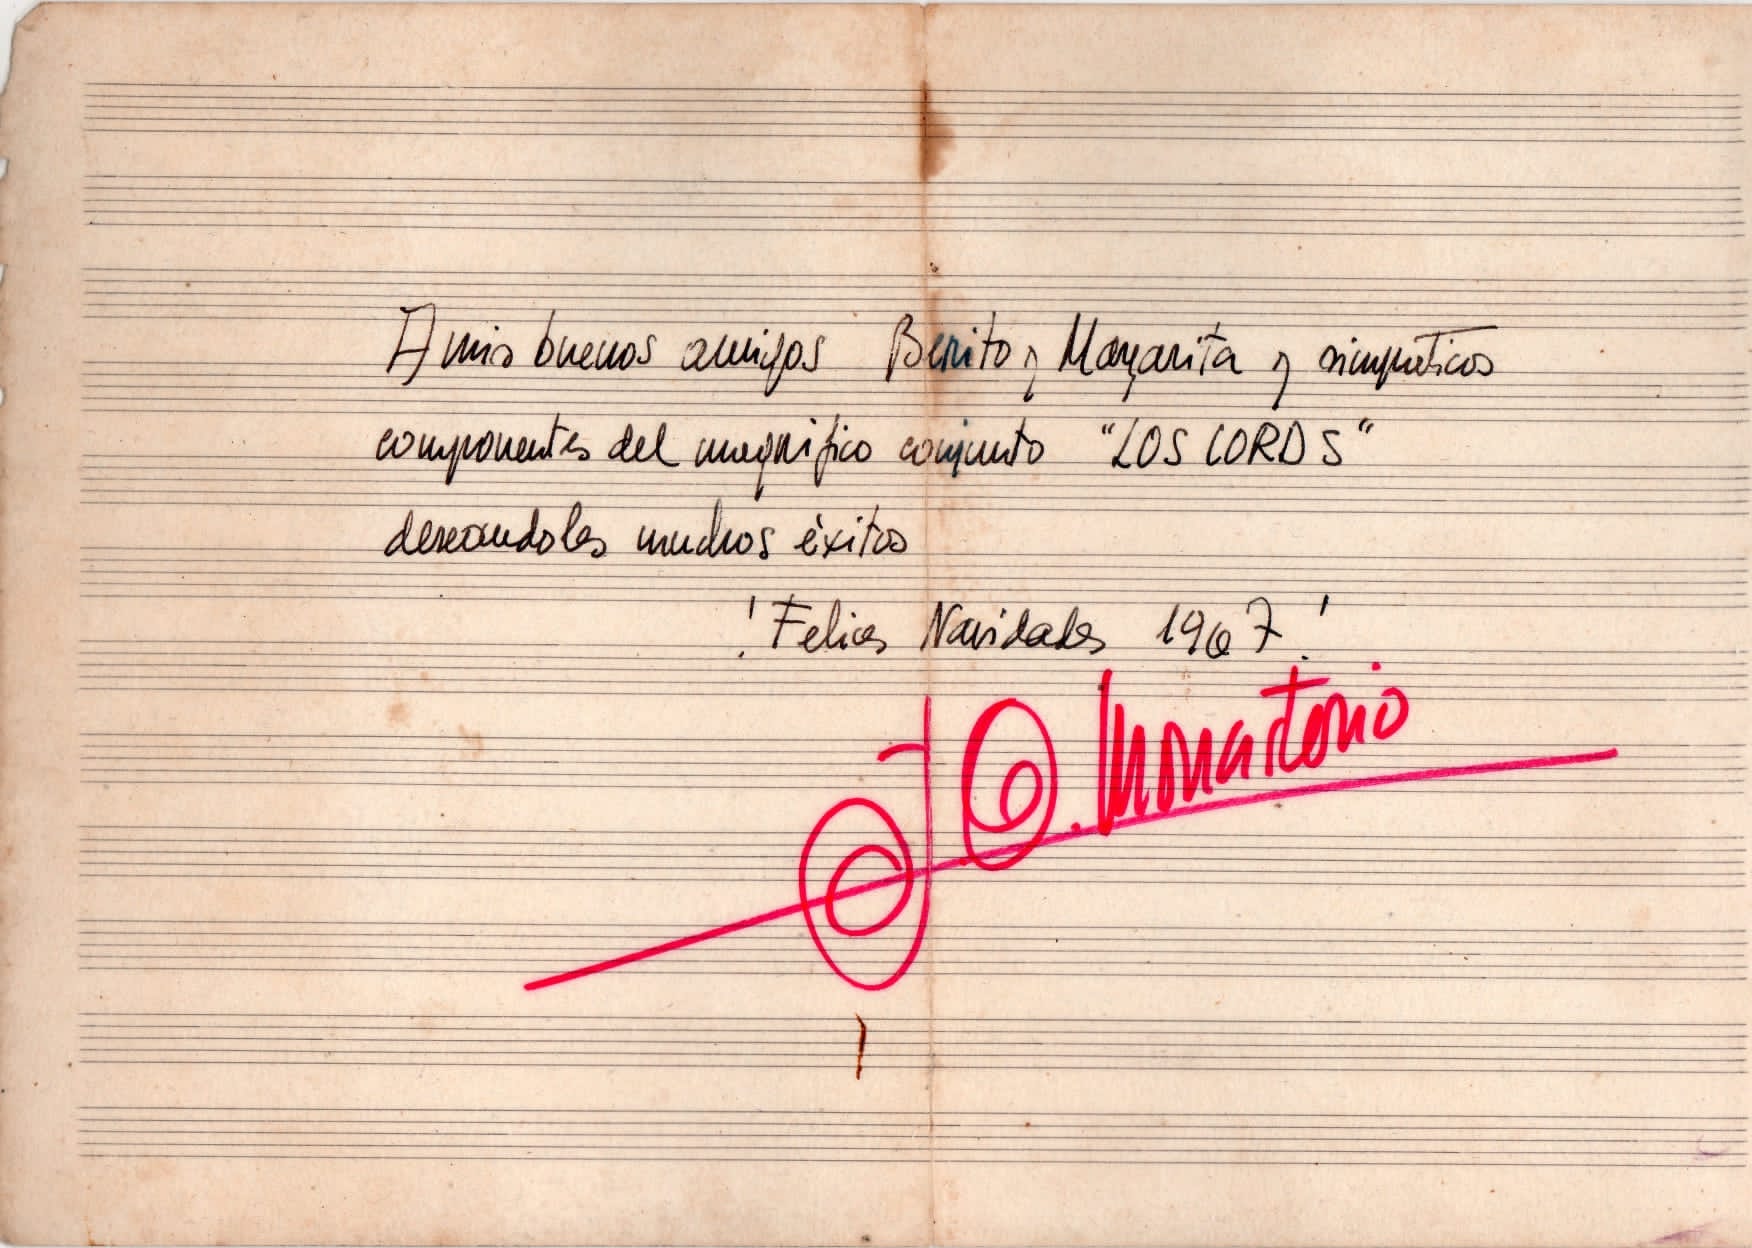 A mis buenos amigos Benito y Margarita y simpáticos
componentes del magnífico conjunto "LOS LORDS"
deseandoles muchos éxitos
¡Felices Navidades 1967!